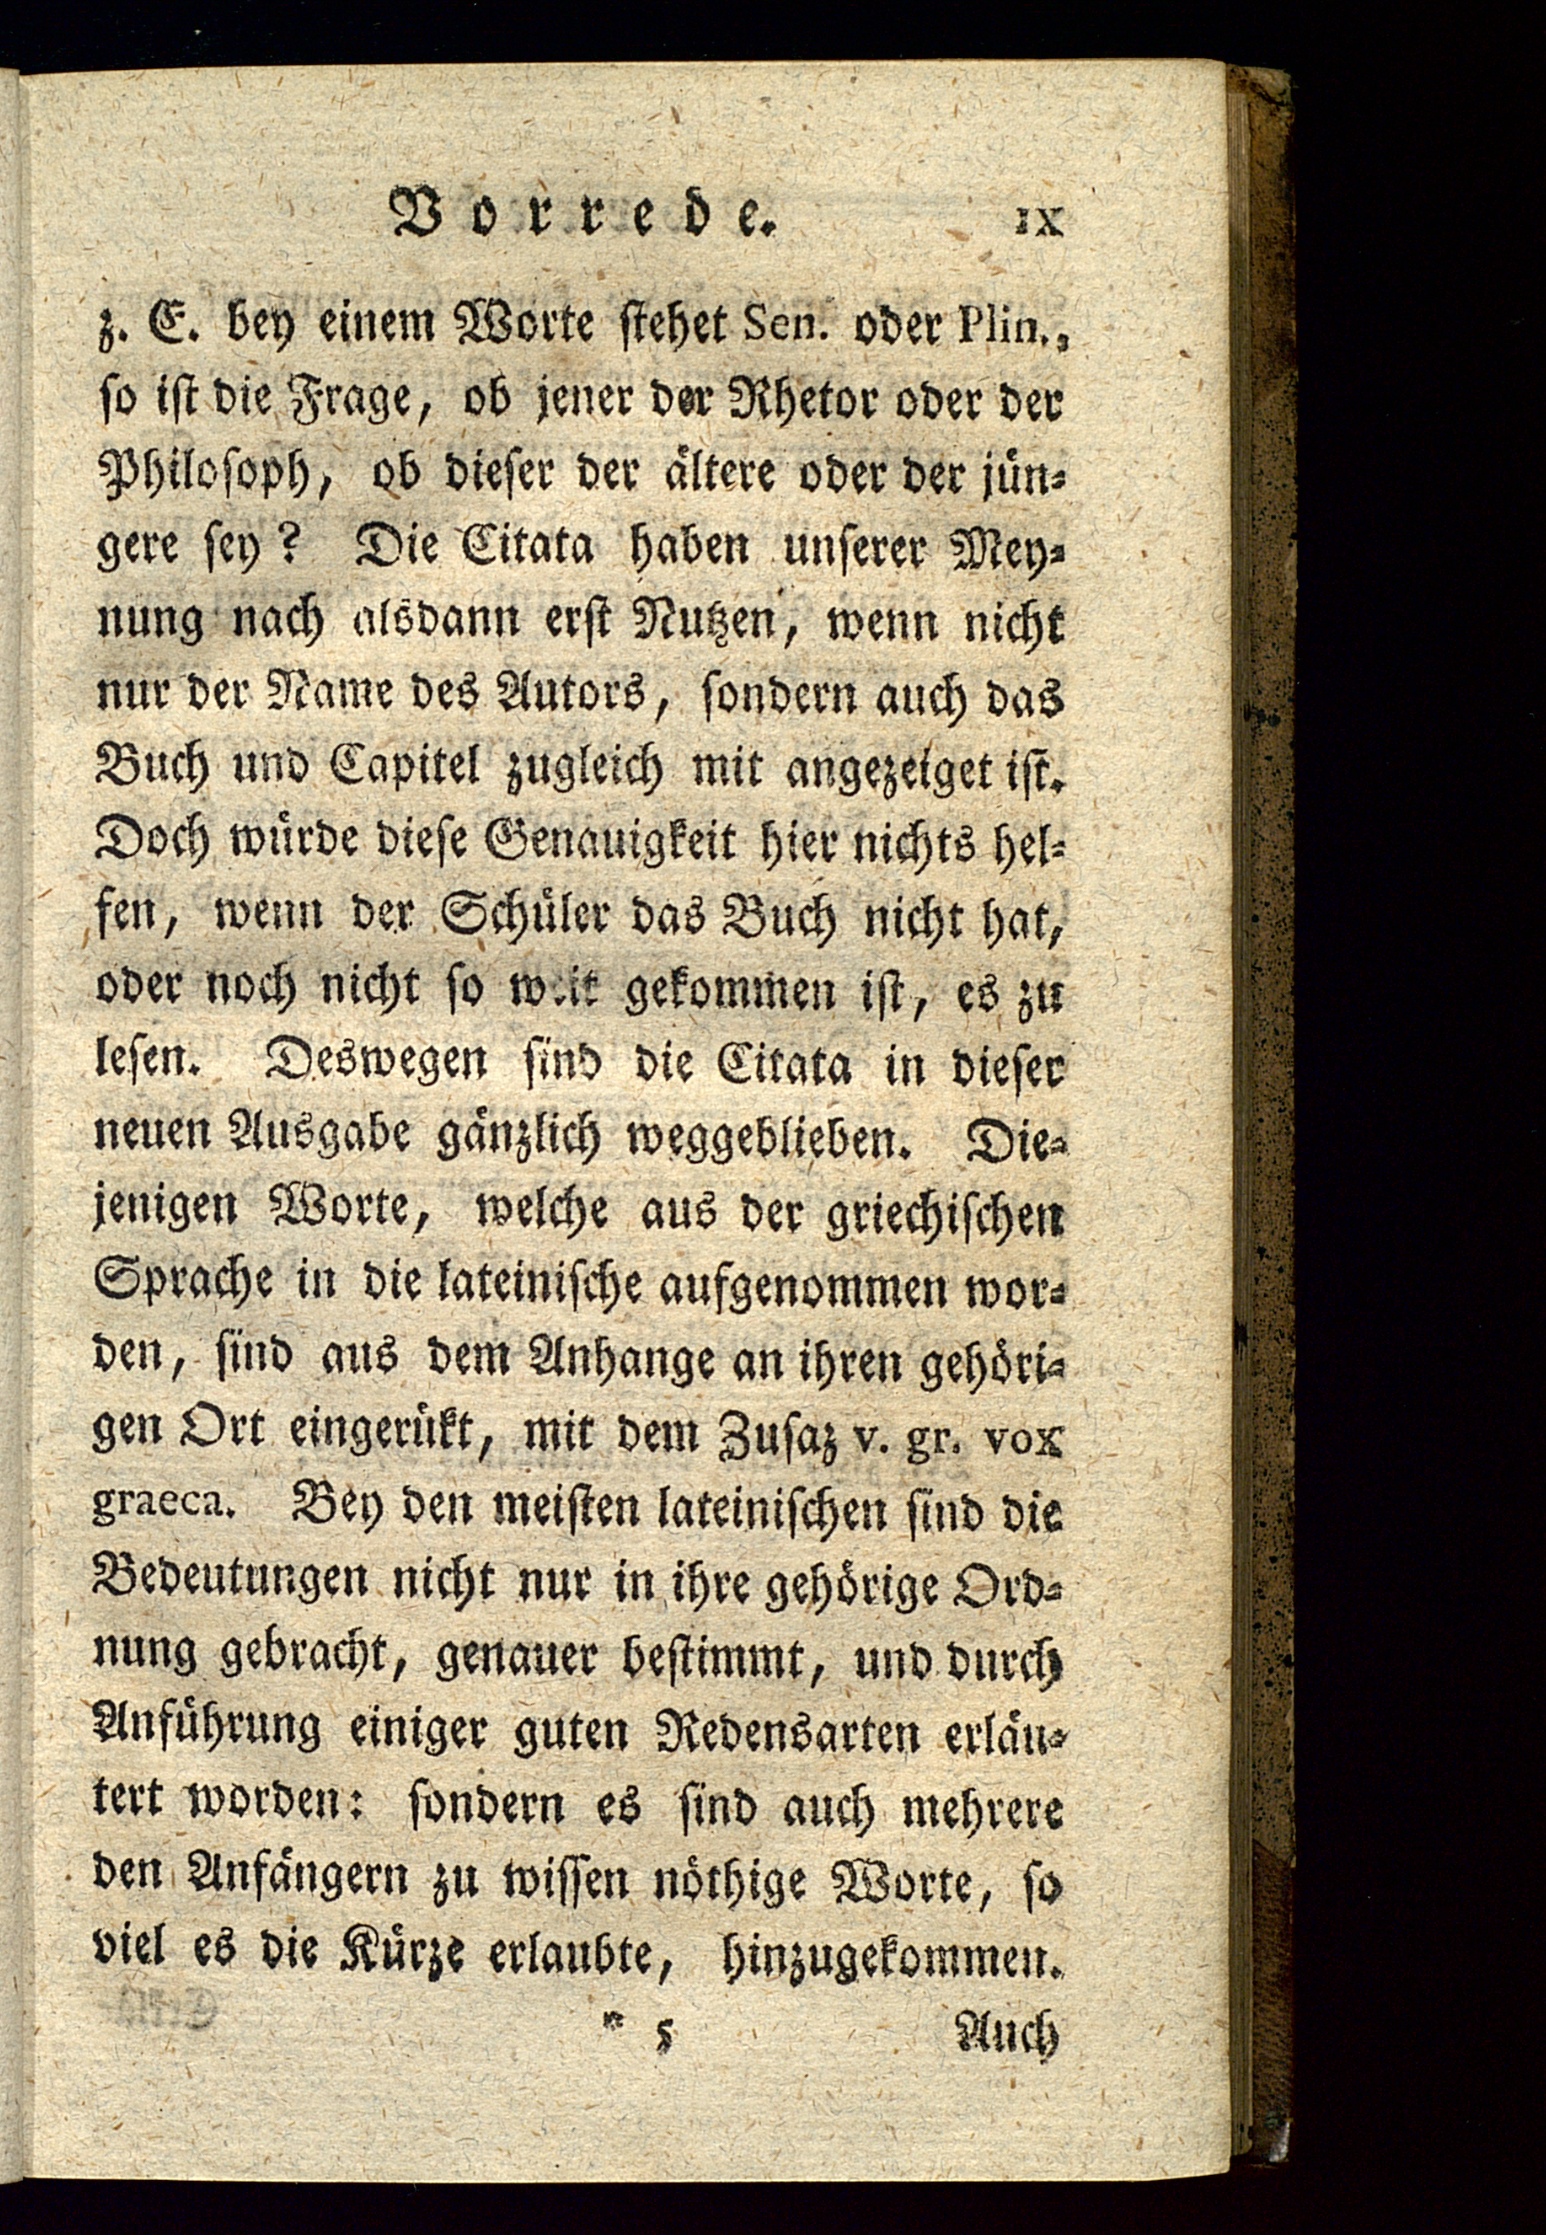 Vorrede. IX
z. E. bey einem Worte stehet Sen. oder Plin.,
so ist die Frage, ob jener der Rhetor oder der
Philosoph, ob dieser der ältere oder der jün-
gere sey? Die Citata haben unserer Mey-
nung nach alsdann erst Nutzen, wenn nicht
nur der Name des Autors, sondern auch das
Buch und Capitel zugleich mit angezeiget ist.
Doch würde diese Genauigkeit hier nichts hel-
fen, wenn der Schüler das Buch nicht hat,
oder noch nicht so weit gekommen ist, es zu
lesen. Deswegen sind die Citata in dieser
neuen Ausgabe gänzlich weggeblieben. Die-
jenigen Worte, welche aus der griechischen
Sprache in die lateinische aufgenommen wor-
den, sind aus dem Anhange an ihren gehöri-
gen Ort eingerükt, mit dem Zusaz v. gr. vox
graeca. Bey den meisten lateinischen sind die
Bedeutungen nicht nur in ihre gehörige Ord-
nung gebracht, genauer bestimmt, und durch
Anführung einiger guten Redensarten erläu-
tert worden: sondern es sind auch mehrere
den Anfängern zu wissen nöthige Worte, so
viel es die Kürze erlaubte, hinzugekommen.
* 5 Auch